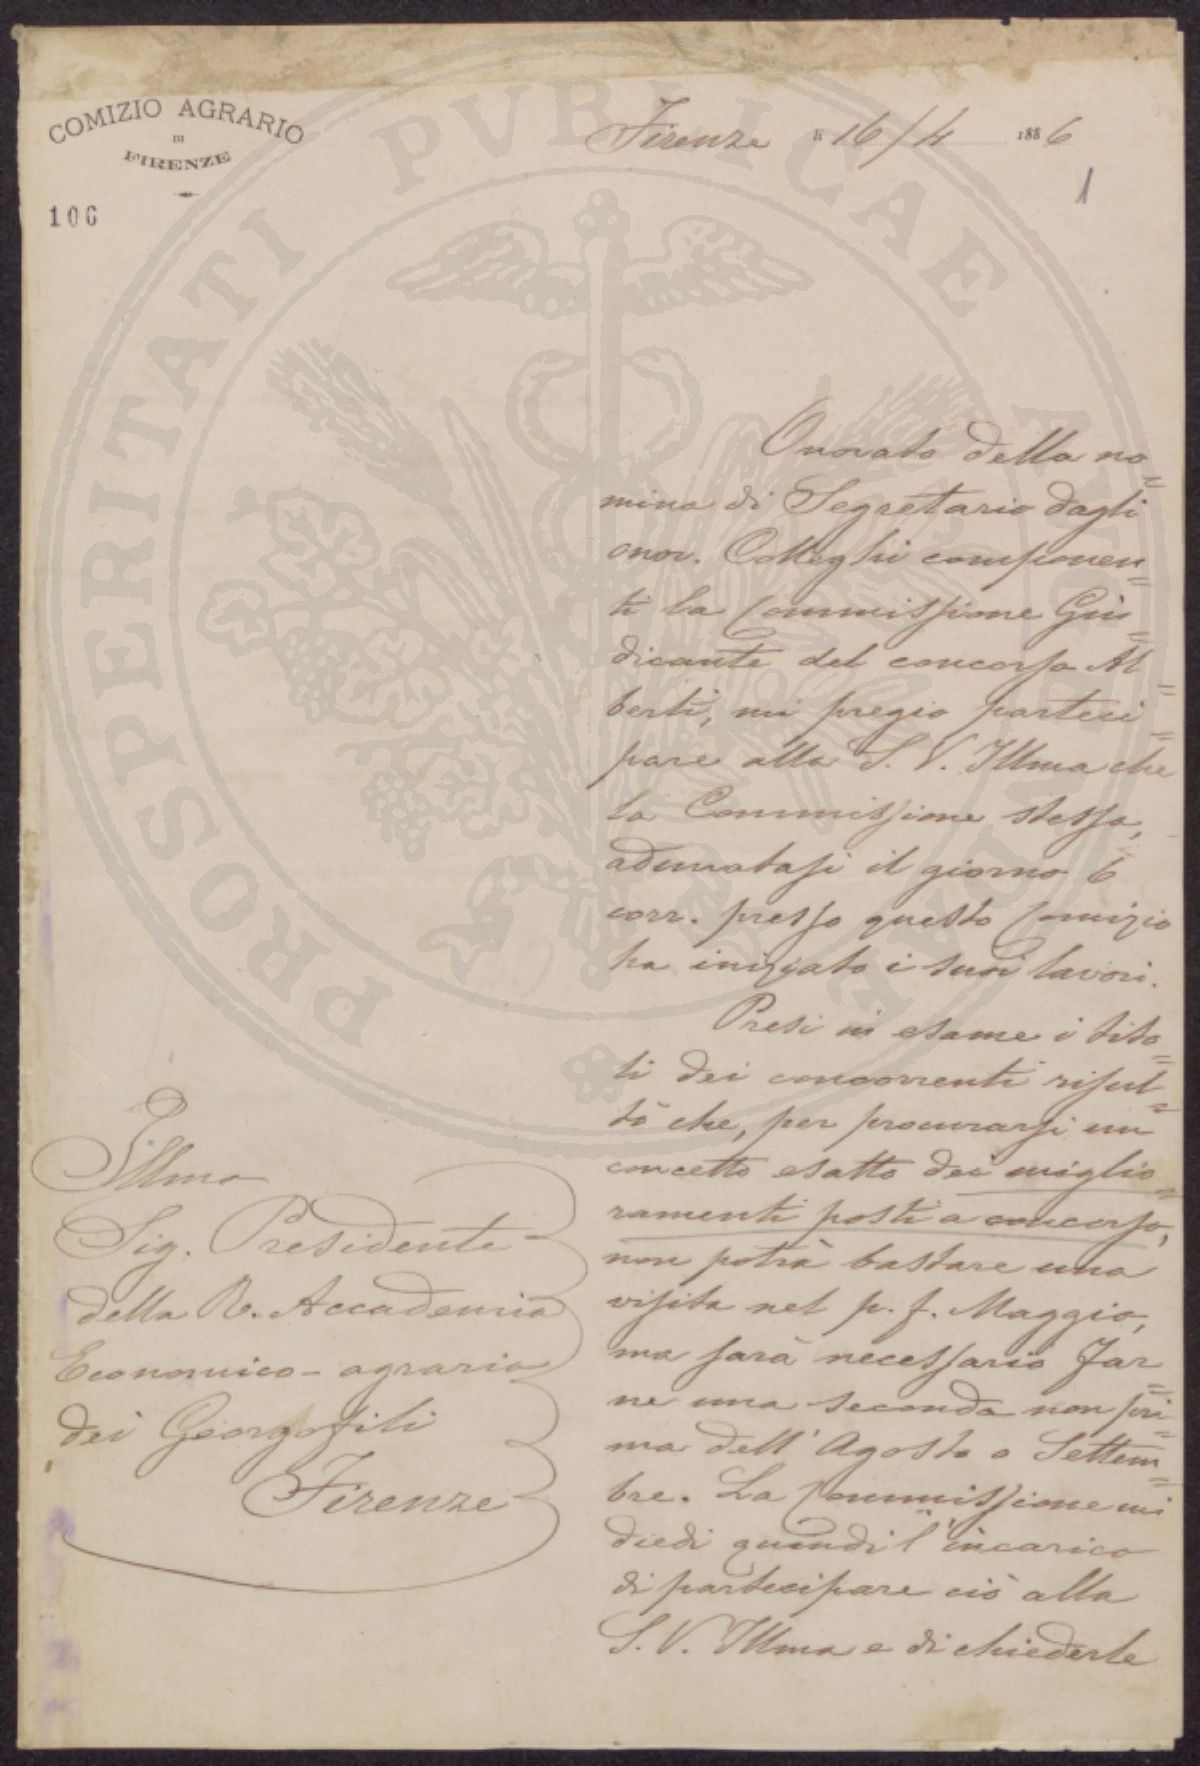 COMIZIO AGRARIO
DI
FIRENZE
106
Firenze li 16/4 1886
1
PROSPERITATI PVBLICAE AVGENDAE
Onorato della no=
mina di Segretario dagli
onor. Colleghi componen=
ti la Commissione Giu=
dicante del concorso Al=
berti, mi pregio parteci=
pare alla S. V. Illma che
la Commissione stessa,
adunatasi il giorno 6
corr. presso questo Comizio
ha iniziato i suoi lavori.
Presi in esame i tito=
li dei concorrenti risul=
tò che, per procurarsi un
concetto esatto dei miglio=
ramenti posti a concorso,
non potrà bastare una
visita nel p. f. Maggio,
ma sarà necessario far=
ne una seconda non pri=
ma dell' Agosto o Settem=
bre. La Commissione mi
diedi quindi l'incarico
di partecipare ciò alla
S. V. Illma e di chiederle
Illmo
Sig. Presidente
della R. Accademia
Economico-agraria
dei Georgofili
Firenze